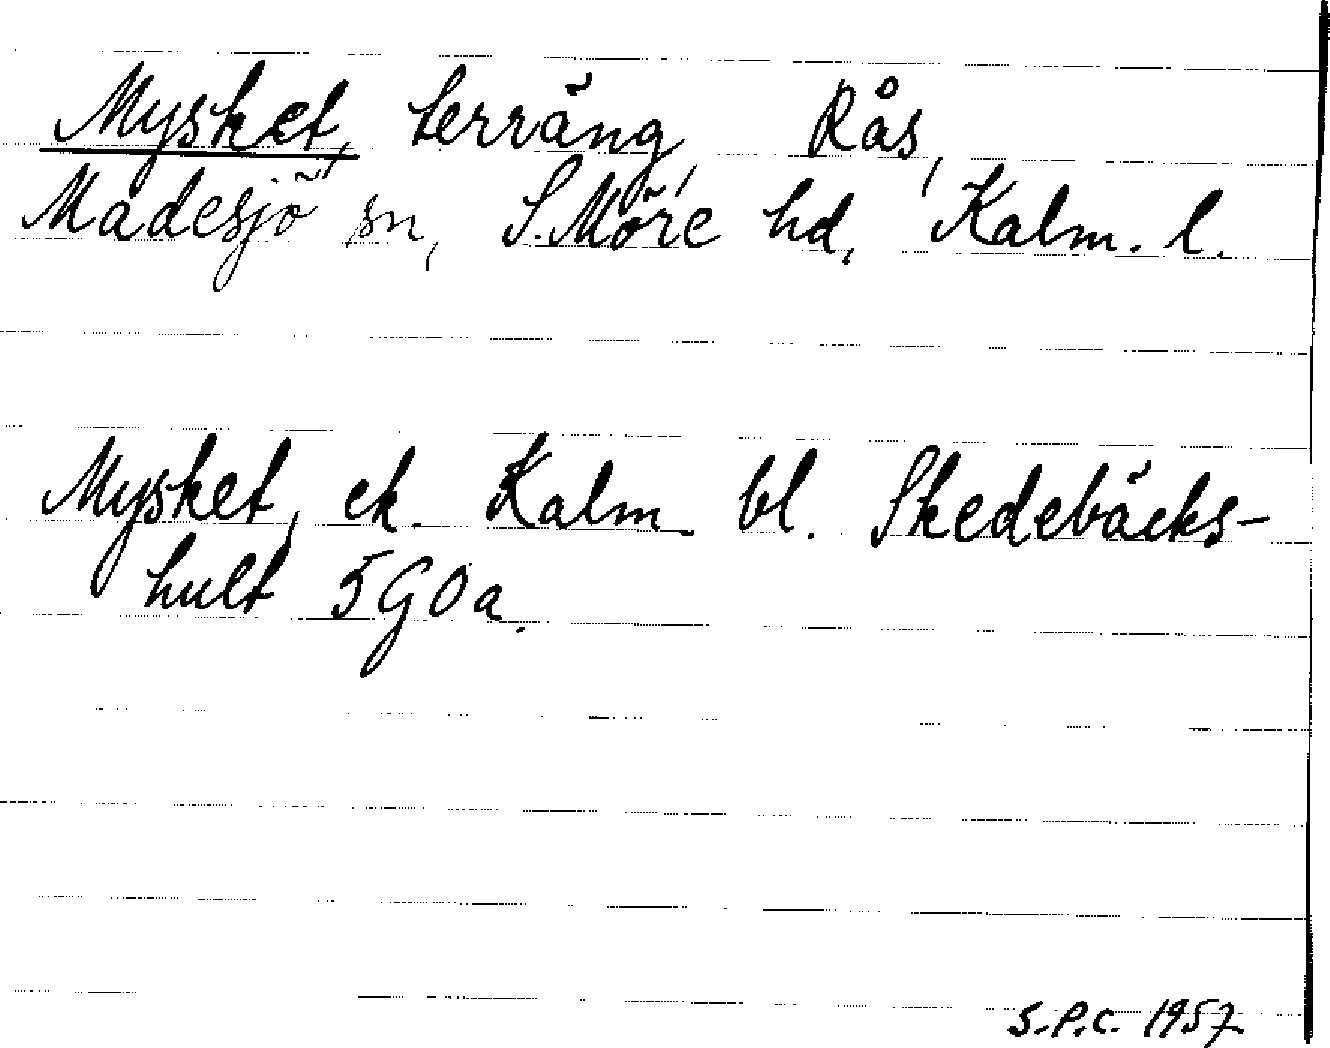 Mysket, terräng, Rås,
Madesjö sn, S. Möre hd, Kalm. l.
Mysket, ek. Kalm bl. Skedebäcks-
hult 5G0a.
S.P.C. 1957